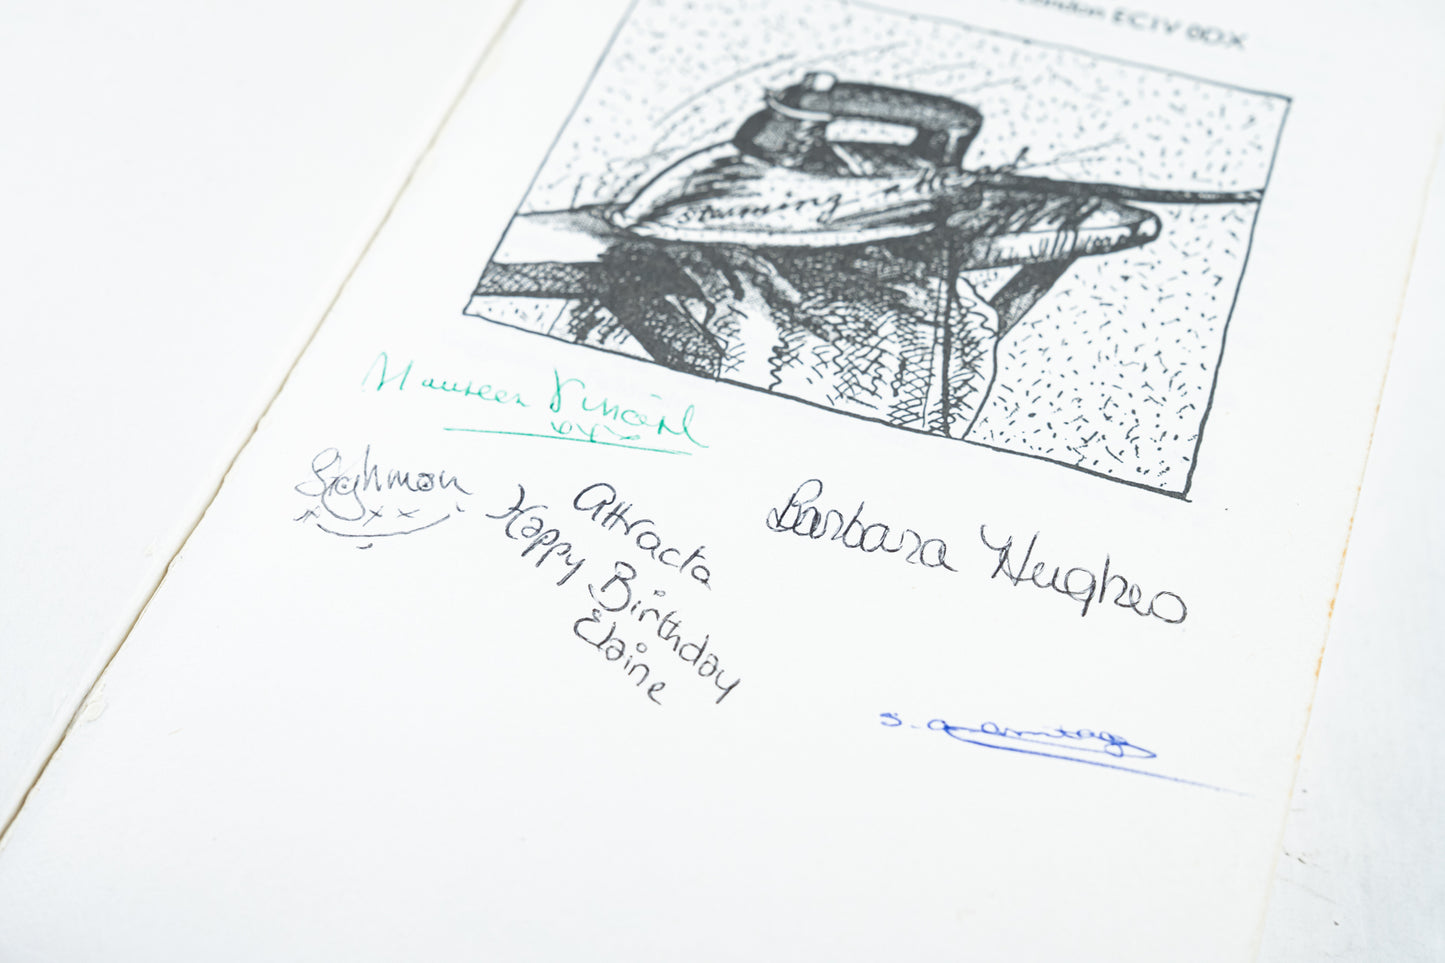 London EC1V 0DX
steaming ahead
Maureen
xxx
xx
Attracta
Happy Birthday
Elaine
Barbara Hughes
S. A. Armitage